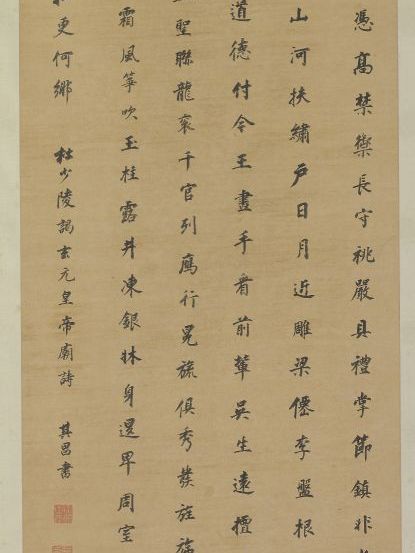 憑高禁籞長守祧嚴具禮掌節鎮非
山河扶繡戶日月近雕梁僊李盤根
道德付今王畫手看前輩吳生遠擅
聖聯龍袞千官列鴈行冕旒俱秀發旌旆
霜風箏吹玉柱露井凍銀牀身退卑周室
更何鄉 杜少陵謁玄元皇帝廟詩 其昌書